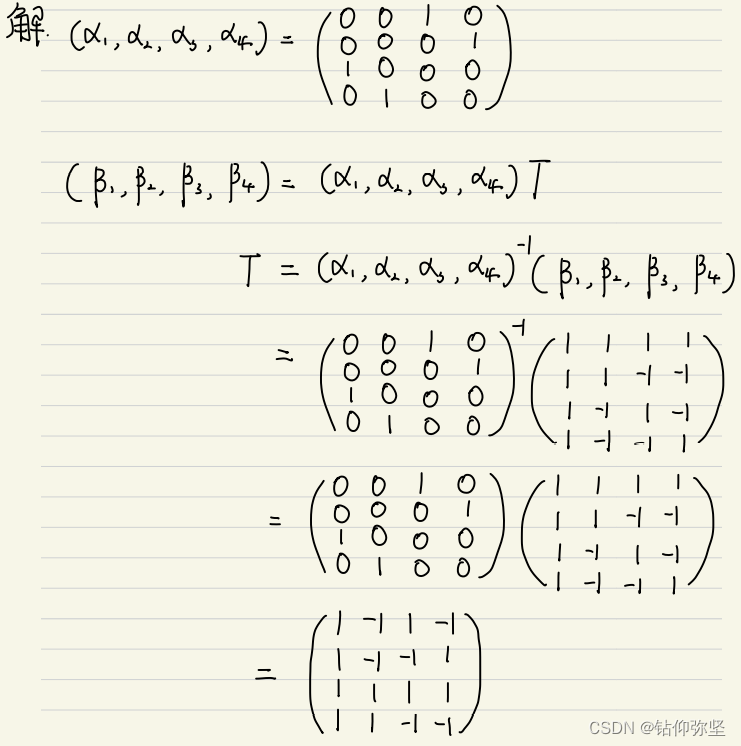 解. (α₁, α₂, α₃, α₄) = ( 0 0 1 0
0 0 0 1
1 0 0 0
0 1 0 0 )
(β₁, β₂, β₃, β₄) = (α₁, α₂, α₃, α₄) T
T = (α₁, α₂, α₃, α₄)⁻¹ (β₁, β₂, β₃, β₄)
= ( 0 0 1 0 )⁻¹ ( 1 1 1 1 )
( 0 0 0 1 ) ( 1 1 -1 -1 )
( 1 0 0 0 ) ( 1 -1 1 -1 )
( 0 1 0 0 ) ( 1 -1 -1 1 )
= ( 0 0 1 0 ) ( 1 1 1 1 )
( 0 0 0 1 ) ( 1 1 -1 -1 )
( 1 0 0 0 ) ( 1 -1 1 -1 )
( 0 1 0 0 ) ( 1 -1 -1 1 )
= ( 1 -1 1 -1
1 -1 -1 1
1 1 1 1
1 1 -1 -1 )
CSDN @钻仰弥坚